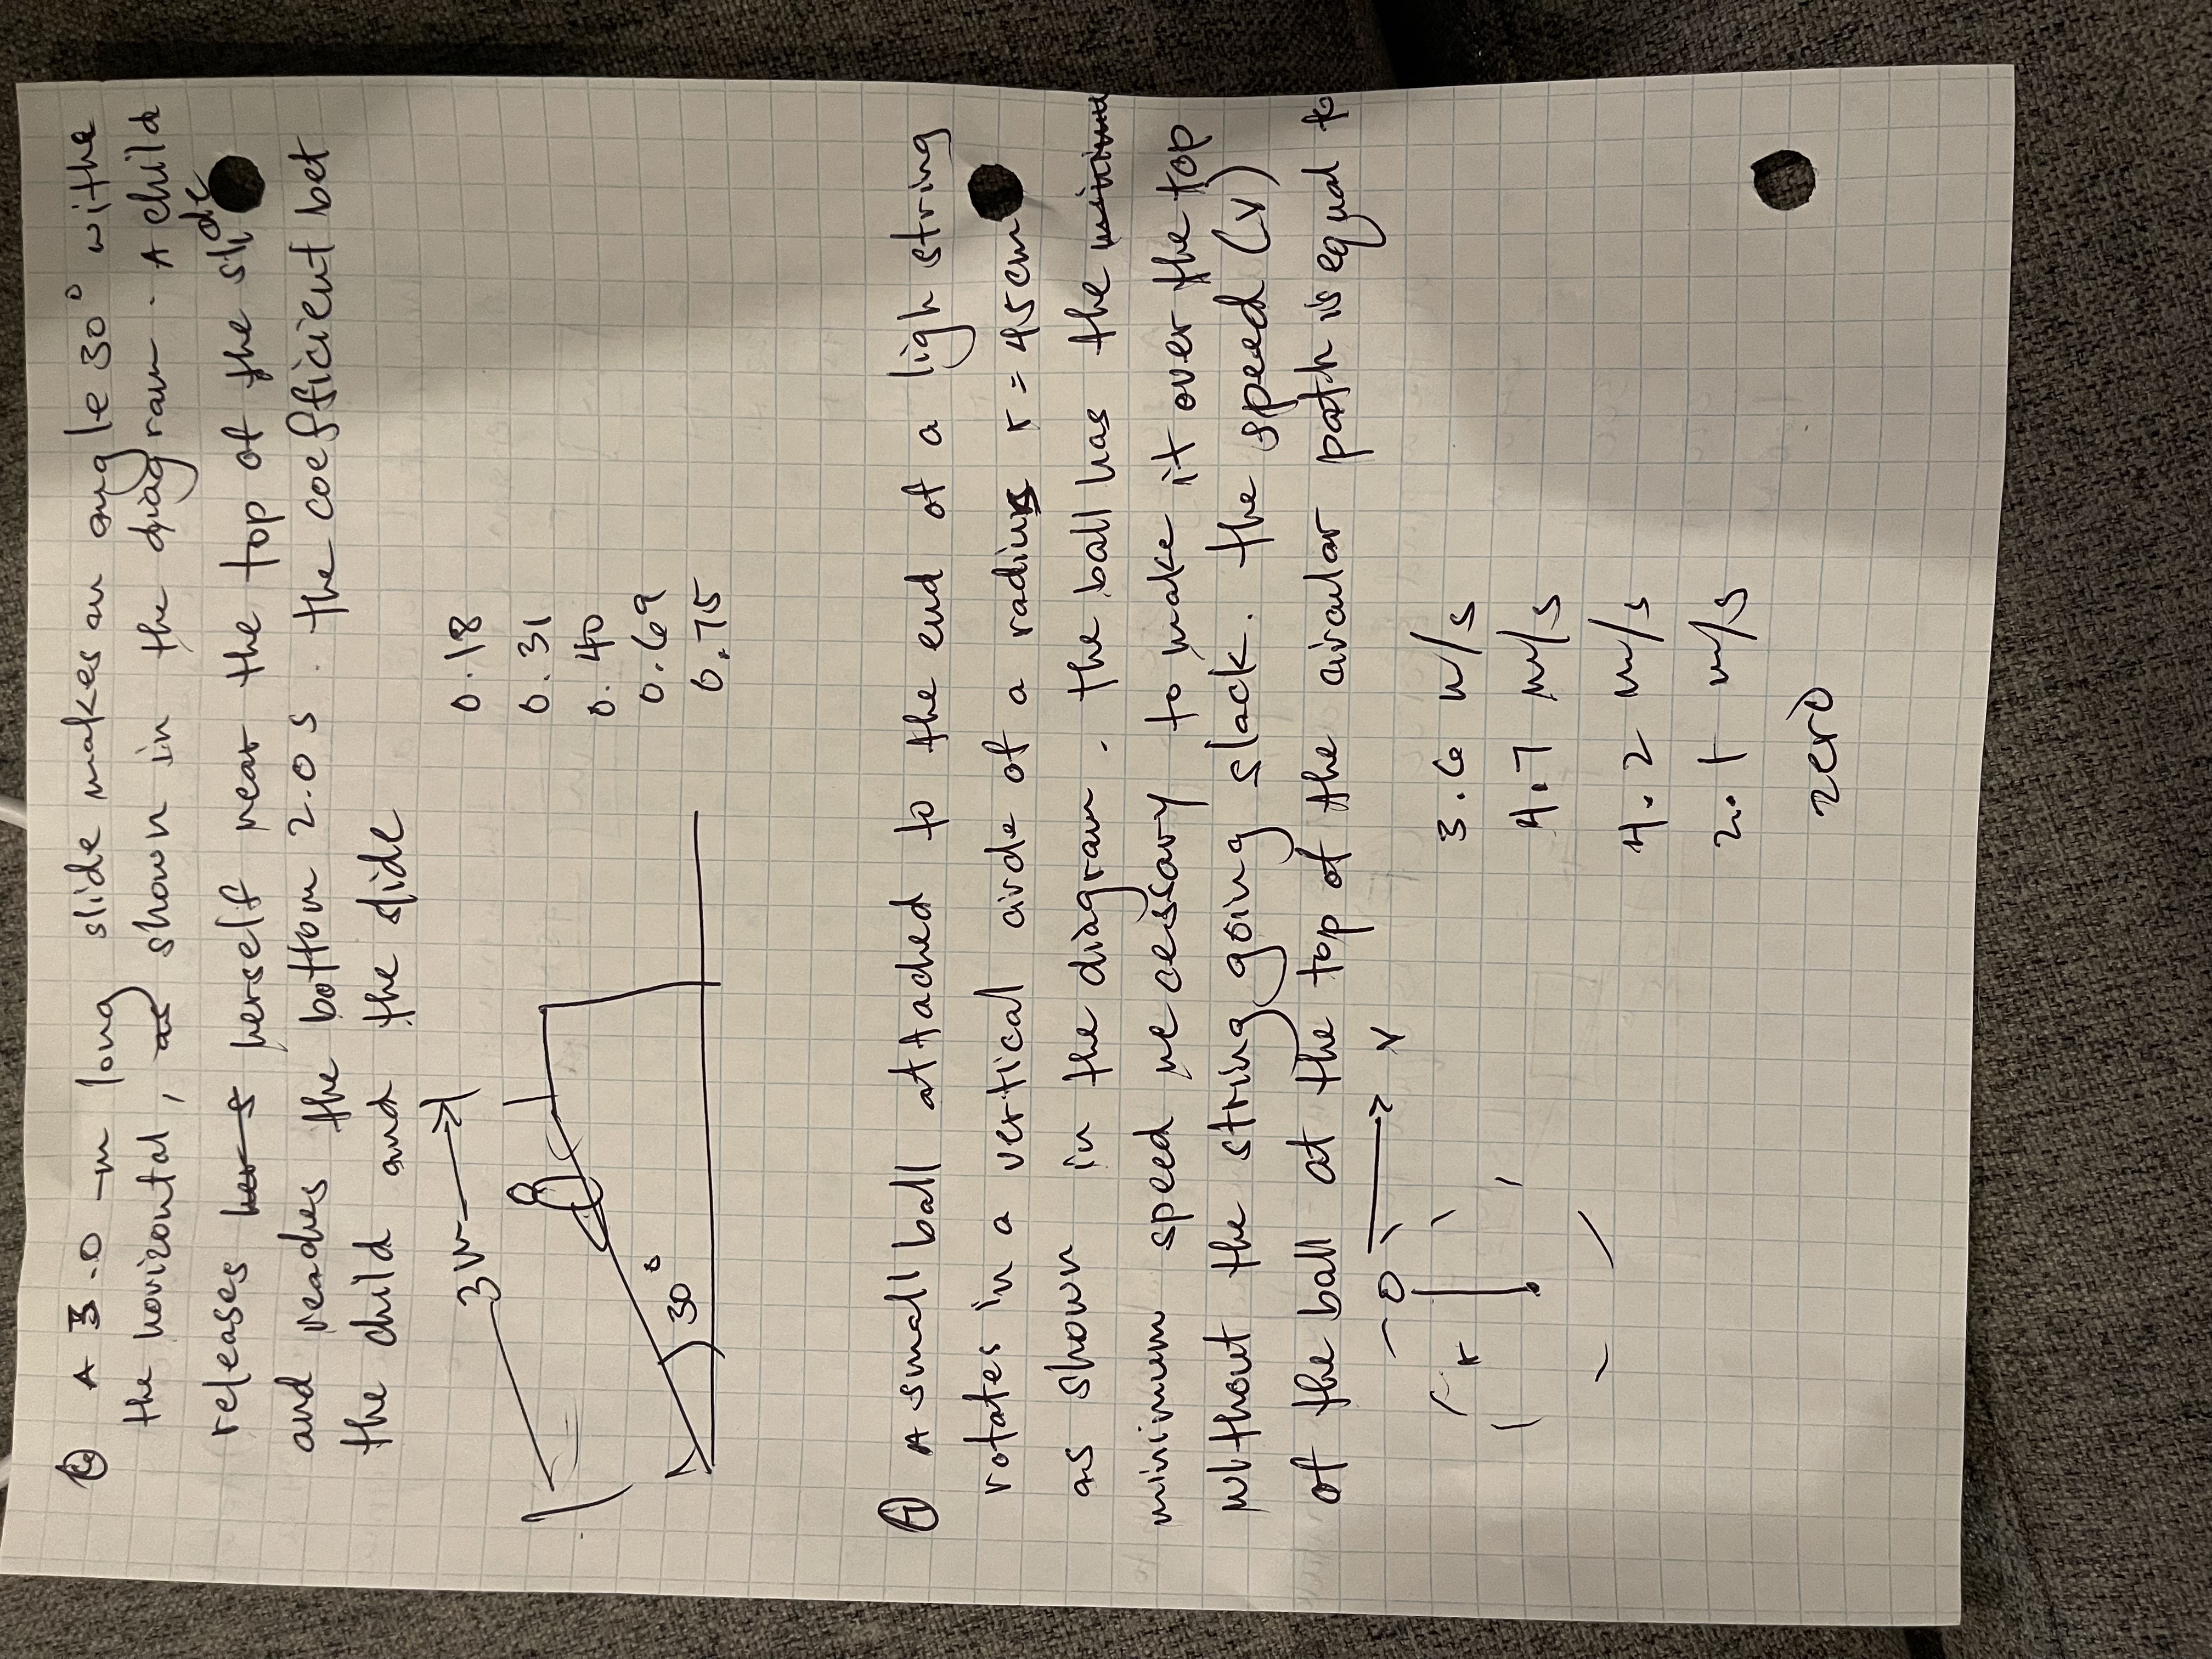 ① A 3.0 -m long slide makes an angle 30° withe
the horizontal, as shown in the diagram. A child
releases her s herself near the top of the slide
and reaches the bottom 2.0 s. the coefficient bet
the child and the slide
3m
30°
0.18
0.31
0.40
0.69
0.75
① A small ball attached to the end of a ligh string
rotates in a vertical circle of a radius r = 45cm
as shown in the diagram. the ball has the minimu
minimum speed necessary to make it over the top
without the string going slack. the speed (v)
of the ball at the top of the circular path is equal to
v
r
3.6 m/s
4.7 m/s
4.2 m/s
2.1 m/s
zero